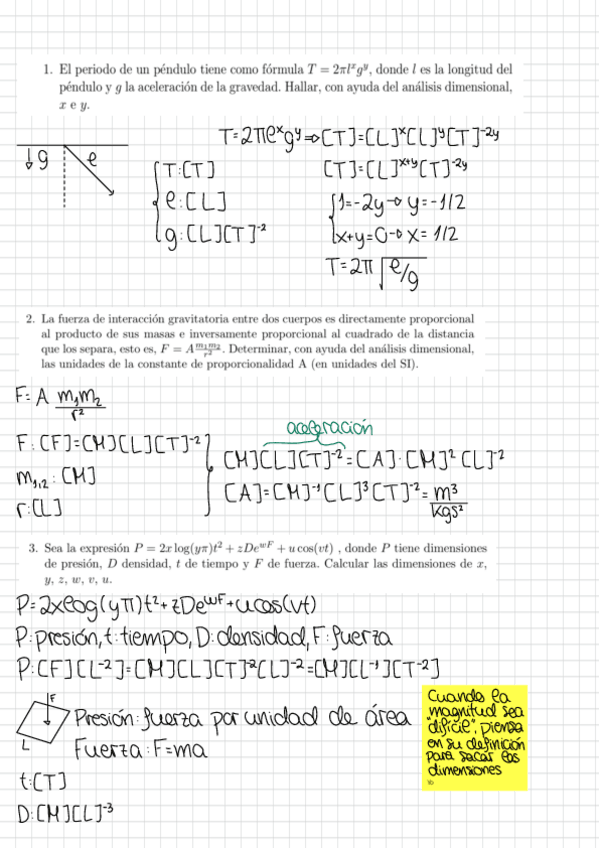 1. El periodo de un péndulo tiene como fórmula T = 2πlˣgʸ, donde l es la longitud del
péndulo y g la aceleración de la gravedad. Hallar, con ayuda del análisis dimensional,
x e y.
T=2πlˣgʸ⇒[T]=[L]ˣ[L]ʸ[T]⁻²ʸ
↓g l
T:[T]
[T]=[L]ˣ⁺ʸ[T]⁻²ʸ
l:[L]
1=-2y→y=-1/2
g:[L][T]⁻²
x+y=0→x=1/2
T=2π√l/g
2. La fuerza de interacción gravitatoria entre dos cuerpos es directamente proporcional
al producto de sus masas e inversamente proporcional al cuadrado de la distancia
que los separa, esto es, F = A m₁m₂/r². Determinar, con ayuda del análisis dimensional,
las unidades de la constante de proporcionalidad A (en unidades del SI).
F=A m₁m₂/r²
aceleración
F:[F]=[M][L][T]⁻²
[M][L][T]⁻²=[A]·[M]²[L]⁻²
m₁,₂:[M]
[A]=[M]⁻¹[L]³[T]⁻²=m³/kgs²
r:[L]
3. Sea la expresión P = 2x log(yπ)t² + zDeʷF + u cos(vt) , donde P tiene dimensiones
de presión, D densidad, t de tiempo y F de fuerza. Calcular las dimensiones de x,
y, z, w, v, u.
P=2xlog(yπ)t²+zDeʷF+ucos(vt)
P:presión,t:tiempo,D:densidad,F:fuerza
P:[F][L⁻²]=[M][L][T]⁻²[L]⁻²=[M][L⁻¹][T⁻²]
F
L
Presión:fuerza por unidad de área
Fuerza:F=ma
Cuando la
magnitud sea
"difícil", piensa
en su definición
para sacar las
dimensiones
t:[T]
D:[M][L]⁻³